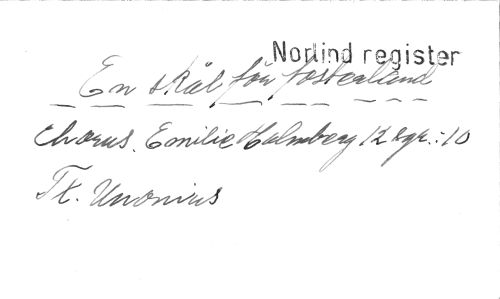 Norlind register
En skål för fosterland
Chorus. Emilie Holmberg 12 sgr.:10
Tx. Unonius